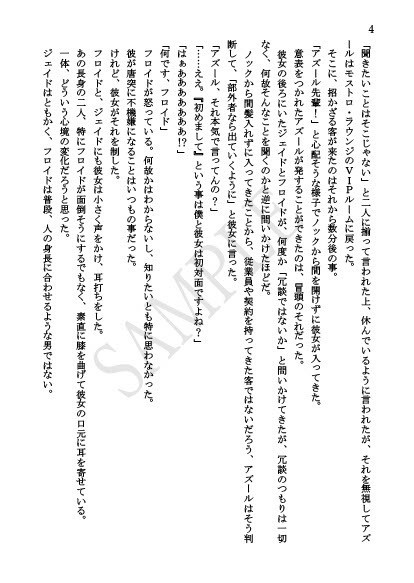 4
「聞きたいことはそこじゃない」と二人に揃って言われた上、休んでいるように言われたが、それを無視してアズ
ールはモストロ・ラウンジのVIPルームに戻った。
そこに、招かざる客が来たのはそれから数分後の事。
「アズール先輩！」と心配そうな様子でノックから間を開けずに彼女が入ってきた。
意表をつかれたアズールが発することができたのは、冒頭のそれだった。
彼女の後ろにいたジェイドとフロイドが、何度か「冗談ではないか」と問いかけてきたが、冗談のつもりは一切
なく、何故そんなことを聞くのかと逆に問いかけたほどだ。
ノックから間髪入れずに入ってきたことから、従業員や契約を持ってきた客ではないだろう、アズールはそう判
断して、「部外者なら出ていくように」と彼女に言った。
「アズール、それ本気で言ってんの？」
「……ええ。『初めまして』という事は僕と彼女は初対面ですよね？」
「はぁあああああ!?」
「何です、フロイド」
フロイドが怒っている。何故かはわからないし、知りたいとも特に思わなかった。
彼が唐突に不機嫌になることはいつもの事だった。
けれど、彼女がそれを制した。
フロイドと、ジェイドにも彼女は小さく声をかけ、耳打ちをした。
あの長身の二人、特にフロイドが面倒そうにするでもなく、素直に膝を曲げて彼女の口元に耳を寄せている。
一体、どういう心境の変化だろうと思った。
ジェイドはともかく、フロイドは普段、人の身長に合わせるような男ではない。
SAMPLE